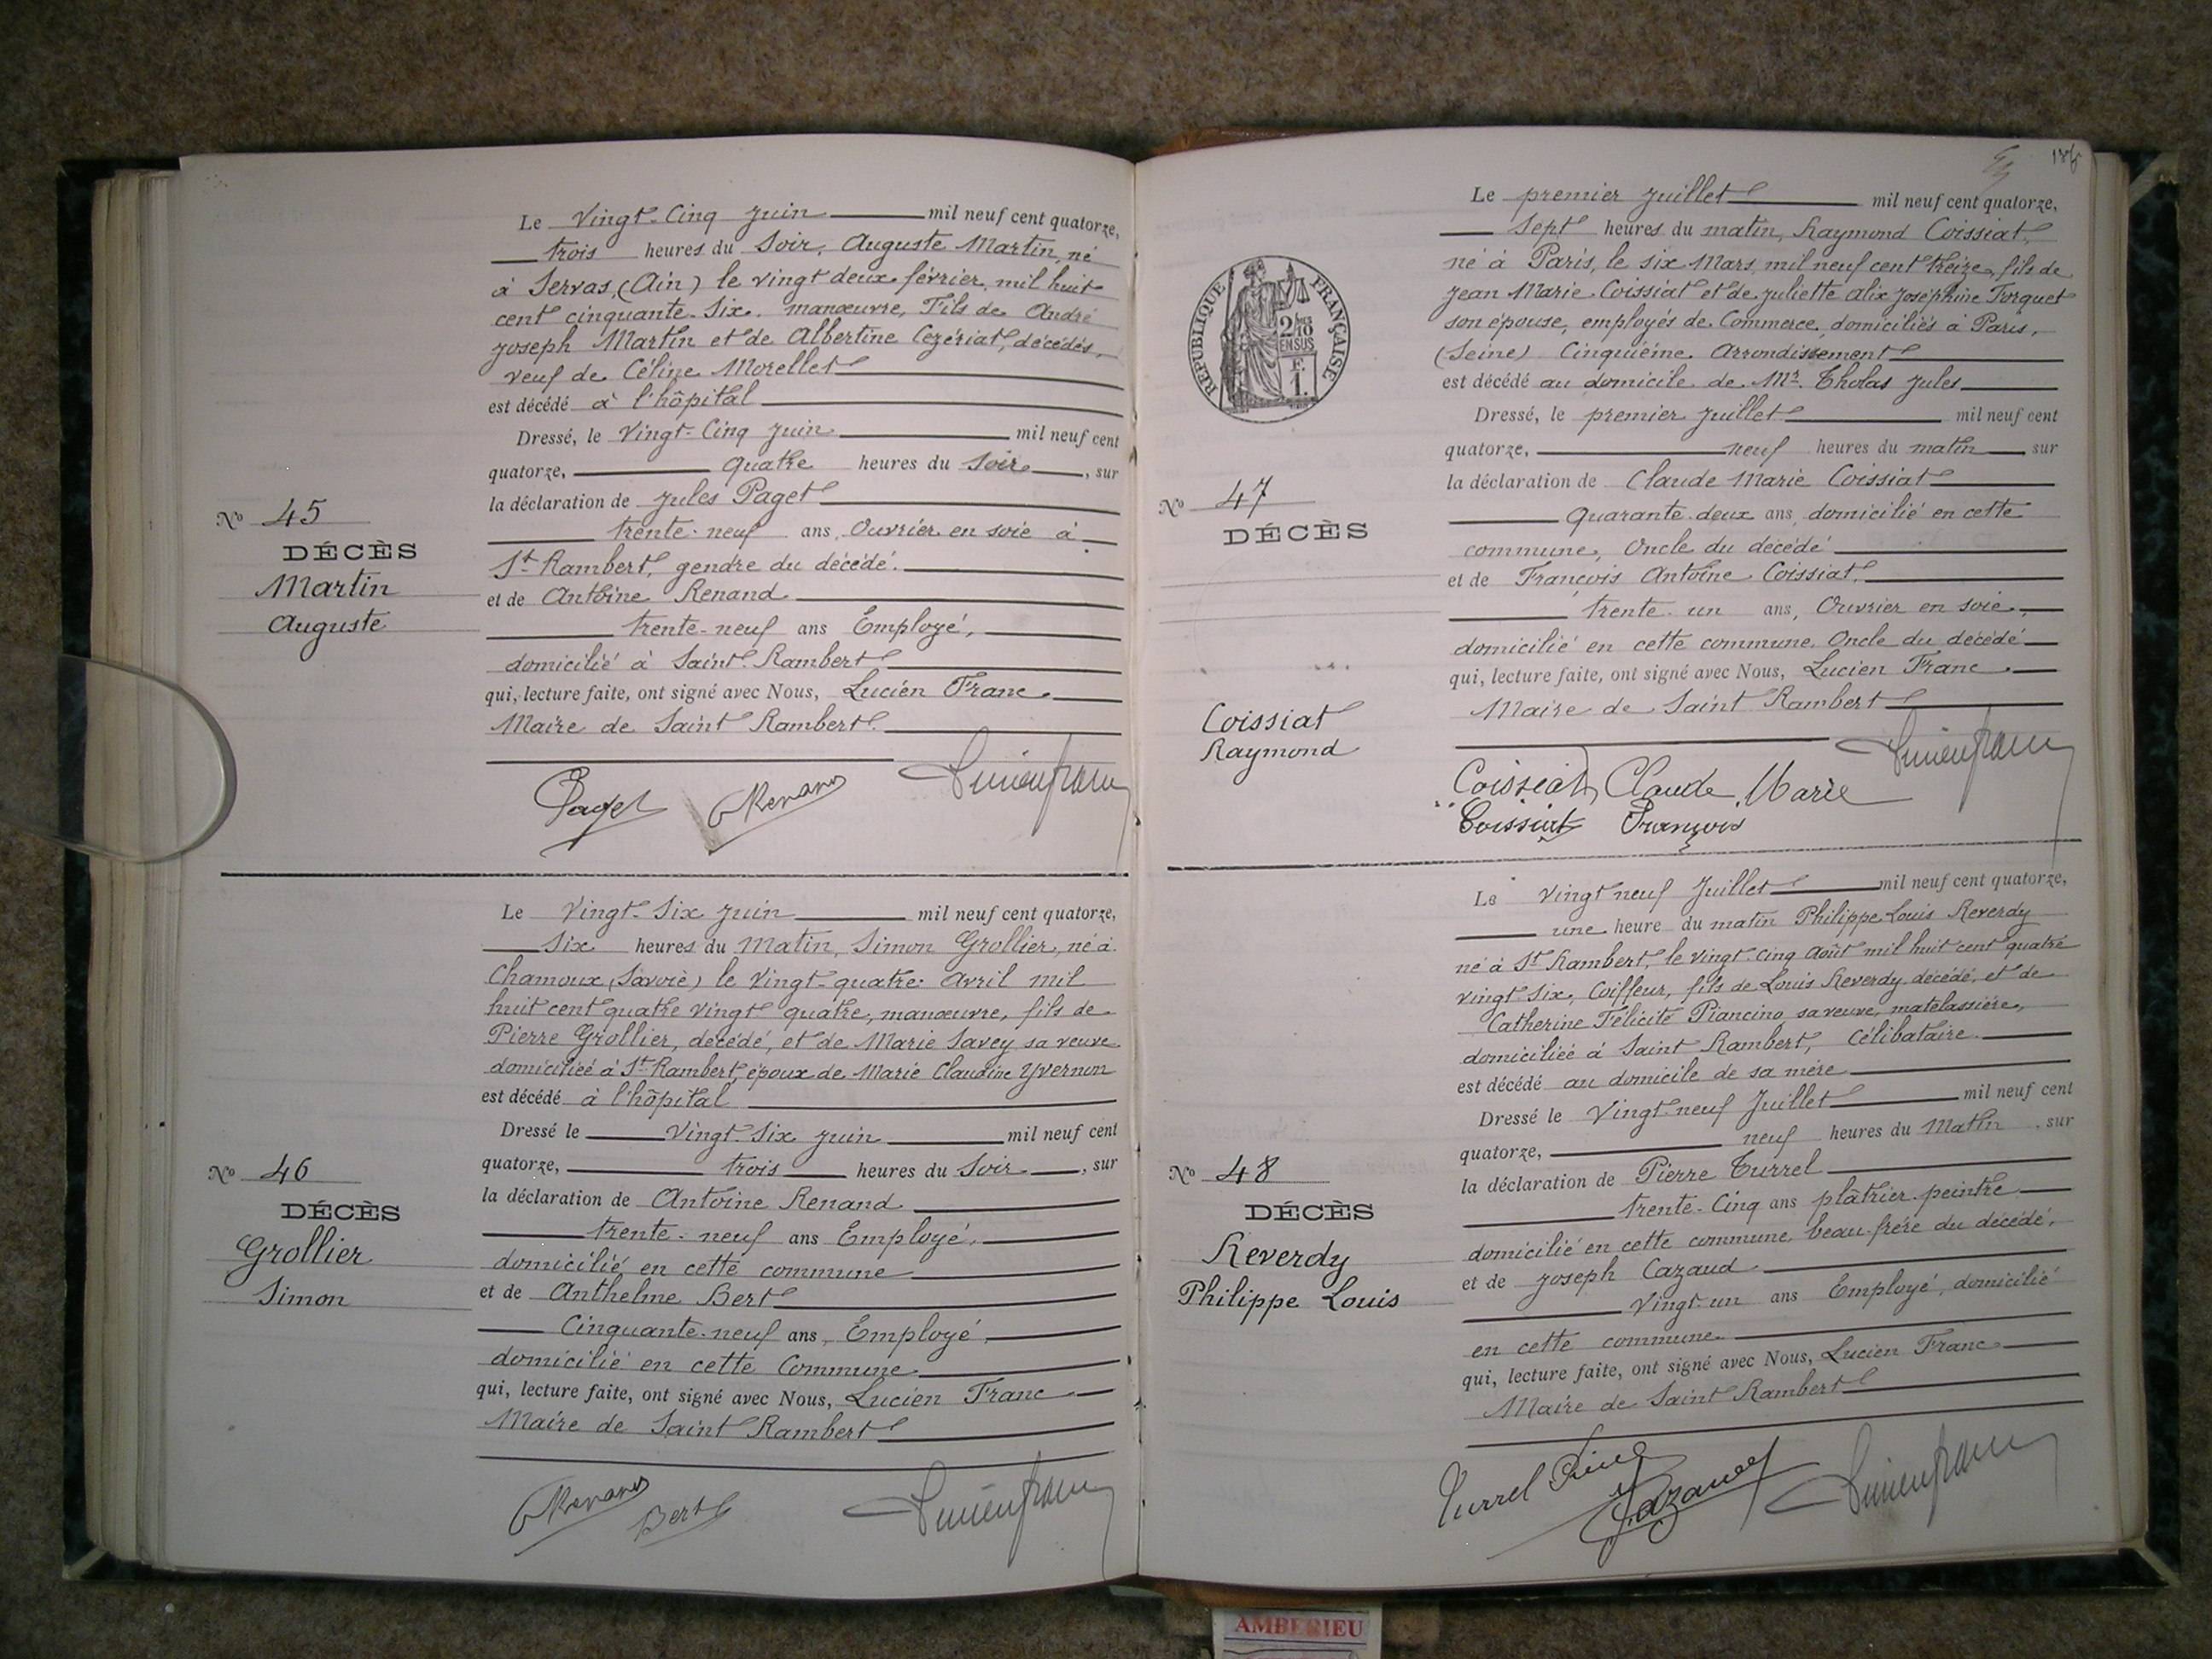 Le Vingt-Cinq Juin mil neuf cent quatorze,
trois heures du Soir, Auguste Martin, né
à Servas, (Ain) le vingt deux février, mil huit
cent cinquante-Six. manœuvre, Fils de André
Joseph Martin et de Albertine Cezériat, décédés,
veuf de Céline Morellet
est décédé à l'hôpital
Dressé, le Vingt-Cinq Juin mil neuf cent
quatorze, quatre heures du Soir, sur
la déclaration de Jules Paget
trente-neuf ans, Ouvrier en soie à
St Rambert, gendre du décédé.
et de Antoine Renand
trente-neuf ans Employé,
domicilié à Saint-Rambert
qui, lecture faite, ont signé avec Nous, Lucien Franc
Maire de Saint Rambert.
No 45
DÉCÈS
Martin
Auguste
Paget Renand Lucien Franc
Le Vingt-Six Juin mil neuf cent quatorze,
Six heures du Matin, Simon Grollier, né à
Chamoux (Savoie) le Vingt-quatre Avril mil
huit cent quatre vingt quatre, manœuvre, fils de
Pierre Grollier, décédé, et de Marie Savey sa veuve
domiciliée à St Rambert, époux de Marie Claudine Yvernon
est décédé à l'hôpital
Dressé le Vingt-Six Juin mil neuf cent
quatorze, trois heures du Soir, sur
la déclaration de Antoine Renand
trente-neuf ans Employé,
domicilié en cette commune
et de Anthelme Bert
Cinquante-neuf ans, Employé,
domicilié en cette Commune
qui, lecture faite, ont signé avec Nous, Lucien Franc
Maire de Saint Rambert
No 46
DÉCÈS
Grollier
Simon
Renand Bert Lucien Franc
Le premier Juillet mil neuf cent quatorze,
Sept heures du matin, Raymond Coissiat,
né à Paris, le six Mars, mil neuf cent treize, fils de
Jean Marie Coissiat et de Juliette Alix Joséphine Torquet
son épouse, employés de Commerce, domiciliés à Paris,
(Seine) Cinquième Arrondissement
est décédé au domicile de Mr. Tholas Jules
Dressé, le premier Juillet mil neuf cent
quatorze, neuf heures du matin sur
la déclaration de Claude Marie Coissiat
Quarante-deux ans, domicilié en cette
commune, Oncle du décédé
et de François Antoine Coissiat,
trente-un ans, Ouvrier en soie,
domicilié en cette commune. Oncle du décédé
qui, lecture faite, ont signé avec Nous, Lucien Franc
Maire de Saint Rambert
RÉPUBLIQUE FRANÇAISE
2/10
EN SUS
E.
1.
No 47
DÉCÈS
Coissiat
Raymond
Coissiat Claude Marie Lucien Franc
Coissiat François
Le vingt neuf Juillet mil neuf cent quatorze,
une heure du matin Philippe Louis Reverdy
né à St Rambert, le vingt-cinq Août mil huit cent quatre
vingt-Six, Coiffeur, fils de Louis Reverdy décédé, et de
Catherine Félicité Piancino, sa veuve, matelassière,
domiciliée à Saint Rambert, Célibataire.
est décédé au domicile de sa mère
Dressé le Vingt-neuf Juillet mil neuf cent
quatorze, neuf heures du Matin, sur
la déclaration de Pierre Turrel
trente-Cinq ans plâtrier-peintre
domicilié en cette commune, beau-frère du décédé,
et de Joseph Cazaud
Vingt-un ans Employé, domicilié
en cette commune
qui, lecture faite, ont signé avec Nous, Lucien Franc
Maire de Saint Rambert
No 48
DÉCÈS
Reverdy
Philippe Louis
Turrel Cazaud Lucien Franc
AMBERIEU